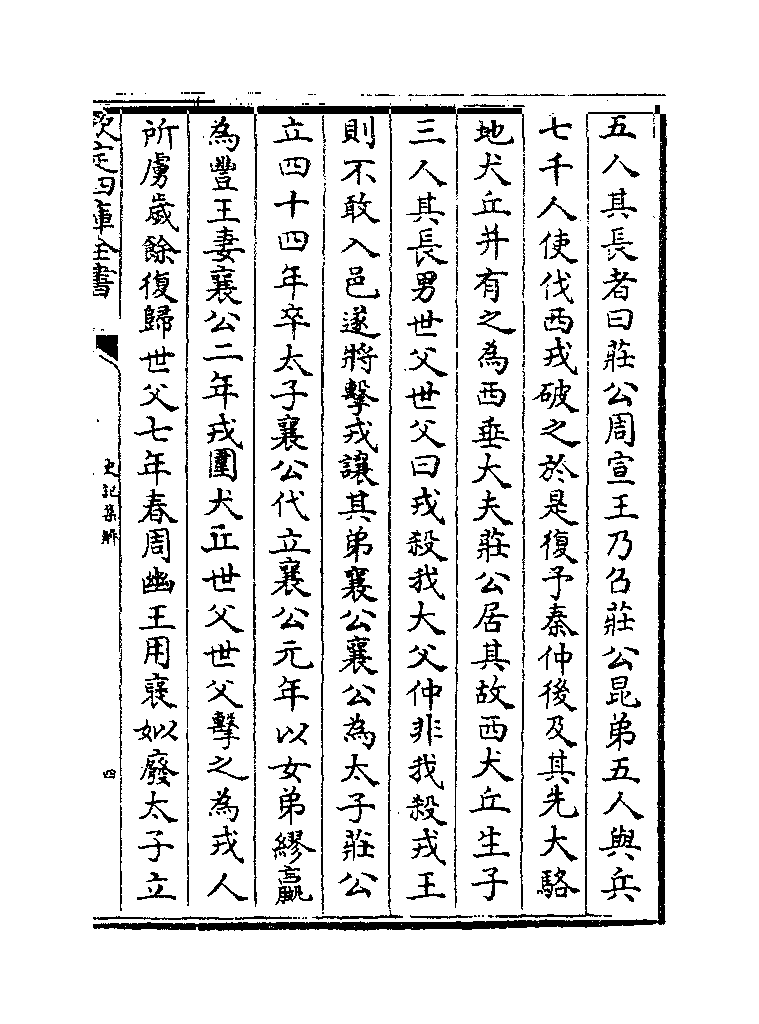 五人其長者曰莊公周宣王乃召莊公昆弟五人與兵
七千人使伐西戎破之於是復予秦仲後及其先大駱
地犬丘并有之為西垂大夫莊公居其故西犬丘生子
三人其長男世父世父曰戎殺我大父仲非我殺戎王
則不敢入邑遂將擊戎讓其弟襄公襄公為太子莊公
立四十四年卒太子襄公代立襄公元年以女弟繆嬴
為豐王妻襄公二年戎圍犬丘世父世父擊之為戎人
所虜歲餘復歸世父七年春周幽王用褒姒廢太子立
欽定四庫全書
史記集解
四